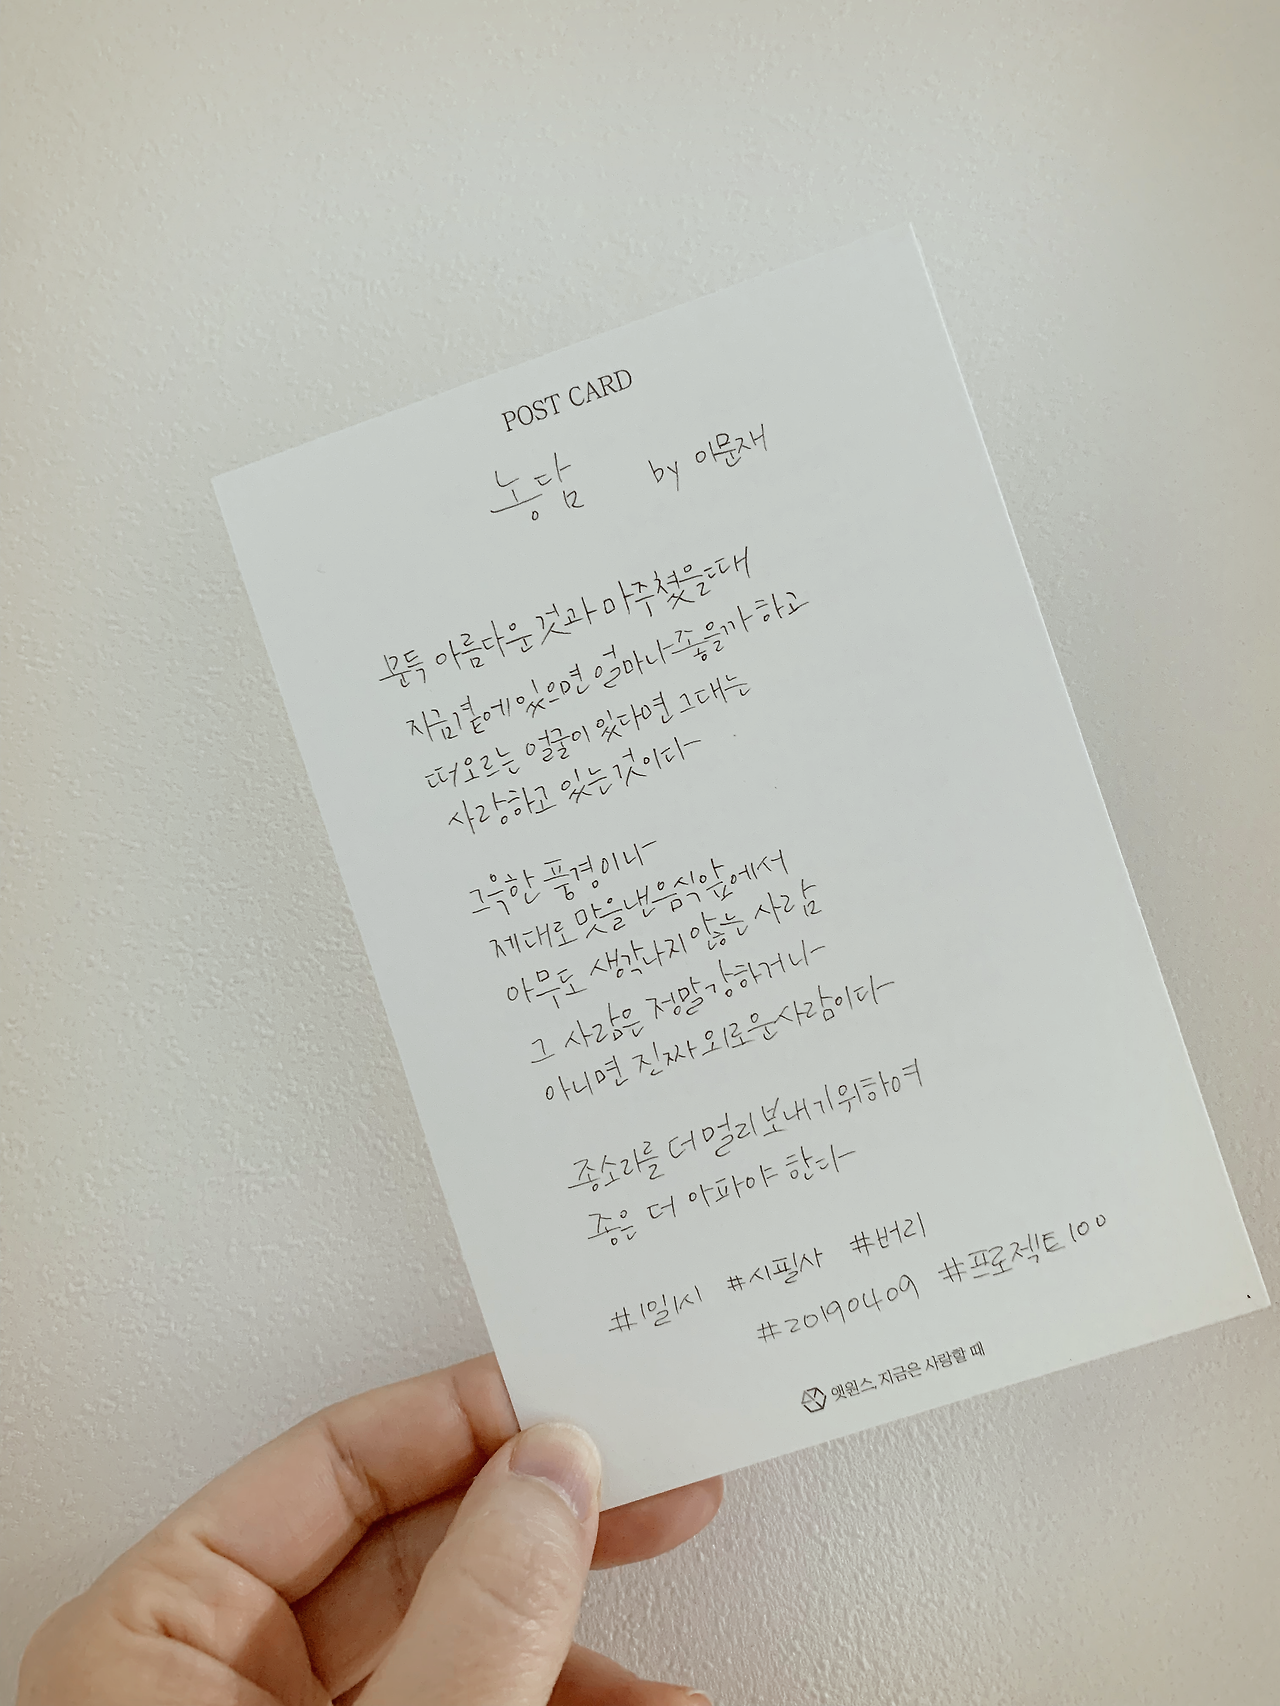 POST CARD
농담 by 이문재
문득 아름다운 것과 마주쳤을때
지금 곁에 있으면 얼마나 좋을까 하고
떠오르는 얼굴이 있다면 그대는
사랑하고 있는것이다
그윽한 풍경이나
제대로 맛을낸 음식앞에서
아무도 생각나지 않는 사람
그 사람은 정말 강하거나
아니면 진짜 외로운사람이다
종소리를 더 멀리 보내기위하여
종은 더 아파야 한다
#1일1시 #시필사 #버리
#20190409 #프로젝트100
앳원스, 지금은 사랑할 때